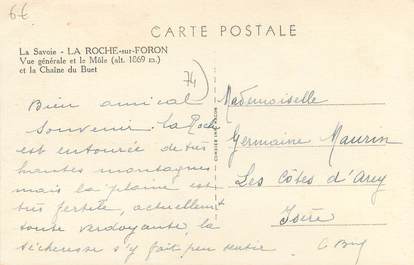 6€
CARTE POSTALE
La Savoie - LA ROCHE-sur-FORON
Vue générale et le Môle (alt. 1869 m.)
et la Chaîne du Buet
74
Bien amical
souvenir. La Roche
est entourée de très
hautes montagnes
mais la plaine est
très fertile, actuellement
toute verdoyante, la
sécheresse s'y fait peu sentir
Mademoiselle
Germaine Maurin
Les Côtes d'Arey
Isère